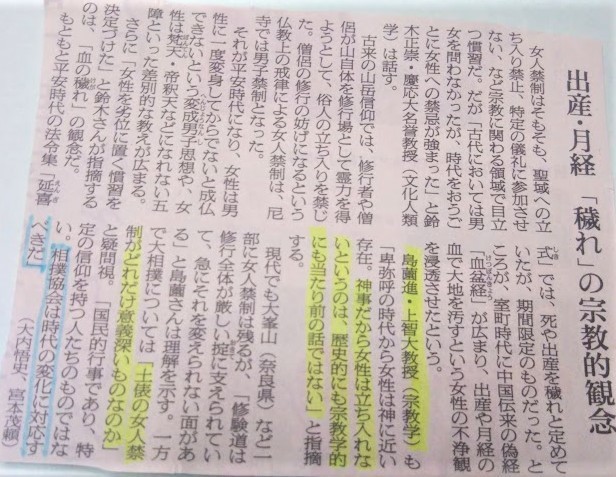 出産・月経「穢れ」の宗教的観念
女人禁制はそもそも、聖域への立
ち入り禁止、特定の儀礼に参加させ
ない、など宗教に関わる領域で目立
つ慣習だ。だが「古代においては男
女を問わなかったが、時代をおうご
とに女性への禁忌が強まった」と鈴
木正崇・慶応大名誉教授(文化人類
学)は話す。
古来の山岳信仰では、修行者や僧
侶が山自体を修行場として霊力を得
ようとして、俗人の立ち入りを禁じ
た。僧侶の修行の妨げになるという
仏教上の戒律による女人禁制は、尼
寺では男子禁制となった。
それが平安時代になり、女性は男
性に一度変身してからでないと成仏
できないという変成男子思想や、女
性は梵天・帝釈天などになれない五
障といった差別的な教えが広まる。
さらに「女性を劣位に置く慣習を
決定づけた」と鈴木さんが指摘する
のは、「血の穢れ」の観念だ。
もともと平安時代の法令集「延喜
式」では、死や出産を穢れと定めて
いたが、期間限定のものだった。と
ころが、室町時代に中国伝来の偽経
「血盆経」が広まり、出産や月経の
血で大地を汚すという女性の不浄観
を浸透させたという。
島薗進・上智大教授(宗教学)も
「卑弥呼の時代から女性は神に近い
存在。神事だから女性は立ち入れな
いというのは、歴史的にも宗教学的
にも当たり前の話ではない」と指摘
する。
現代でも大峯山(奈良県)など一
部に女人禁制は残るが、「修験道は
修行全体が厳しい掟に支えられてい
て、急にそれを変えられない面があ
る」と島薗さんは理解を示す。一方
で大相撲については「土俵の女人禁
制がどれだけ意義深いものなのか」
と疑問視。「国民的行事であり、特
定の信仰を持つ人たちのものではな
い。相撲協会は時代の変化に対応す
べきだ」
(大内悟史、宮本茂頼)